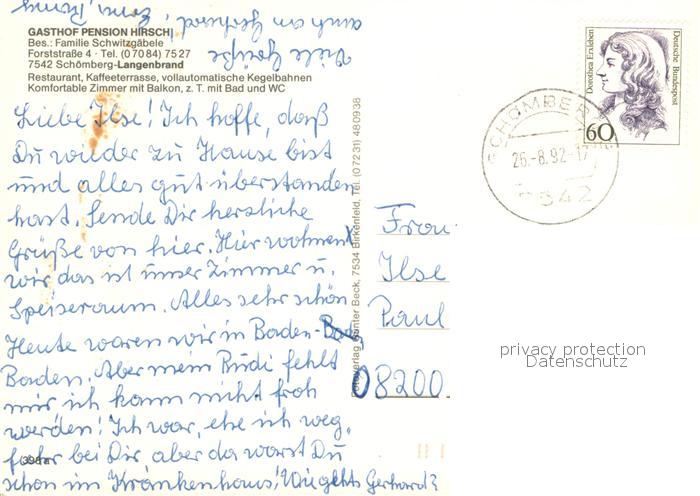 Viele Grüße
auch an Gerhard,
GASTHOF PENSION HIRSCH
Bes.: Familie Schwitzgäbele
Forststraße 4 · Tel. (0 70 84) 75 27
7542 Schömberg-Langenbrand
Restaurant, Kaffeeterrasse, vollautomatische Kegelbahnen
Komfortable Zimmer mit Balkon, z. T. mit Bad und WC
Liebe Ilse! Ich hoffe, daß
Du wieder zu Hause bist
und alles gut überstanden
hast. Sende Dir herzliche
Grüße von hier. Hier wohnen
wir das ist unser Zimmer u.
Speiseraum. Alles sehr schön
Heute waren wir in Baden-
Baden. Aber mein Rudi fehlt
mir ich kann nicht froh
werden! Ich war, ehe ich weg,
fuhr bei Dir aber da warst Du
schon im Krankenhaus! Wie gehts Gerhard?
Fotoverlag Günter Beck, 7534 Birkenfeld, Tel. (07231) 480938
Dorothea Erxleben
Deutsche Bundespost
60
SCHÖMBERG
26.-8.92-17
7542
Frau
Ilse
Paul
08200
privacy protection
Datenschutz